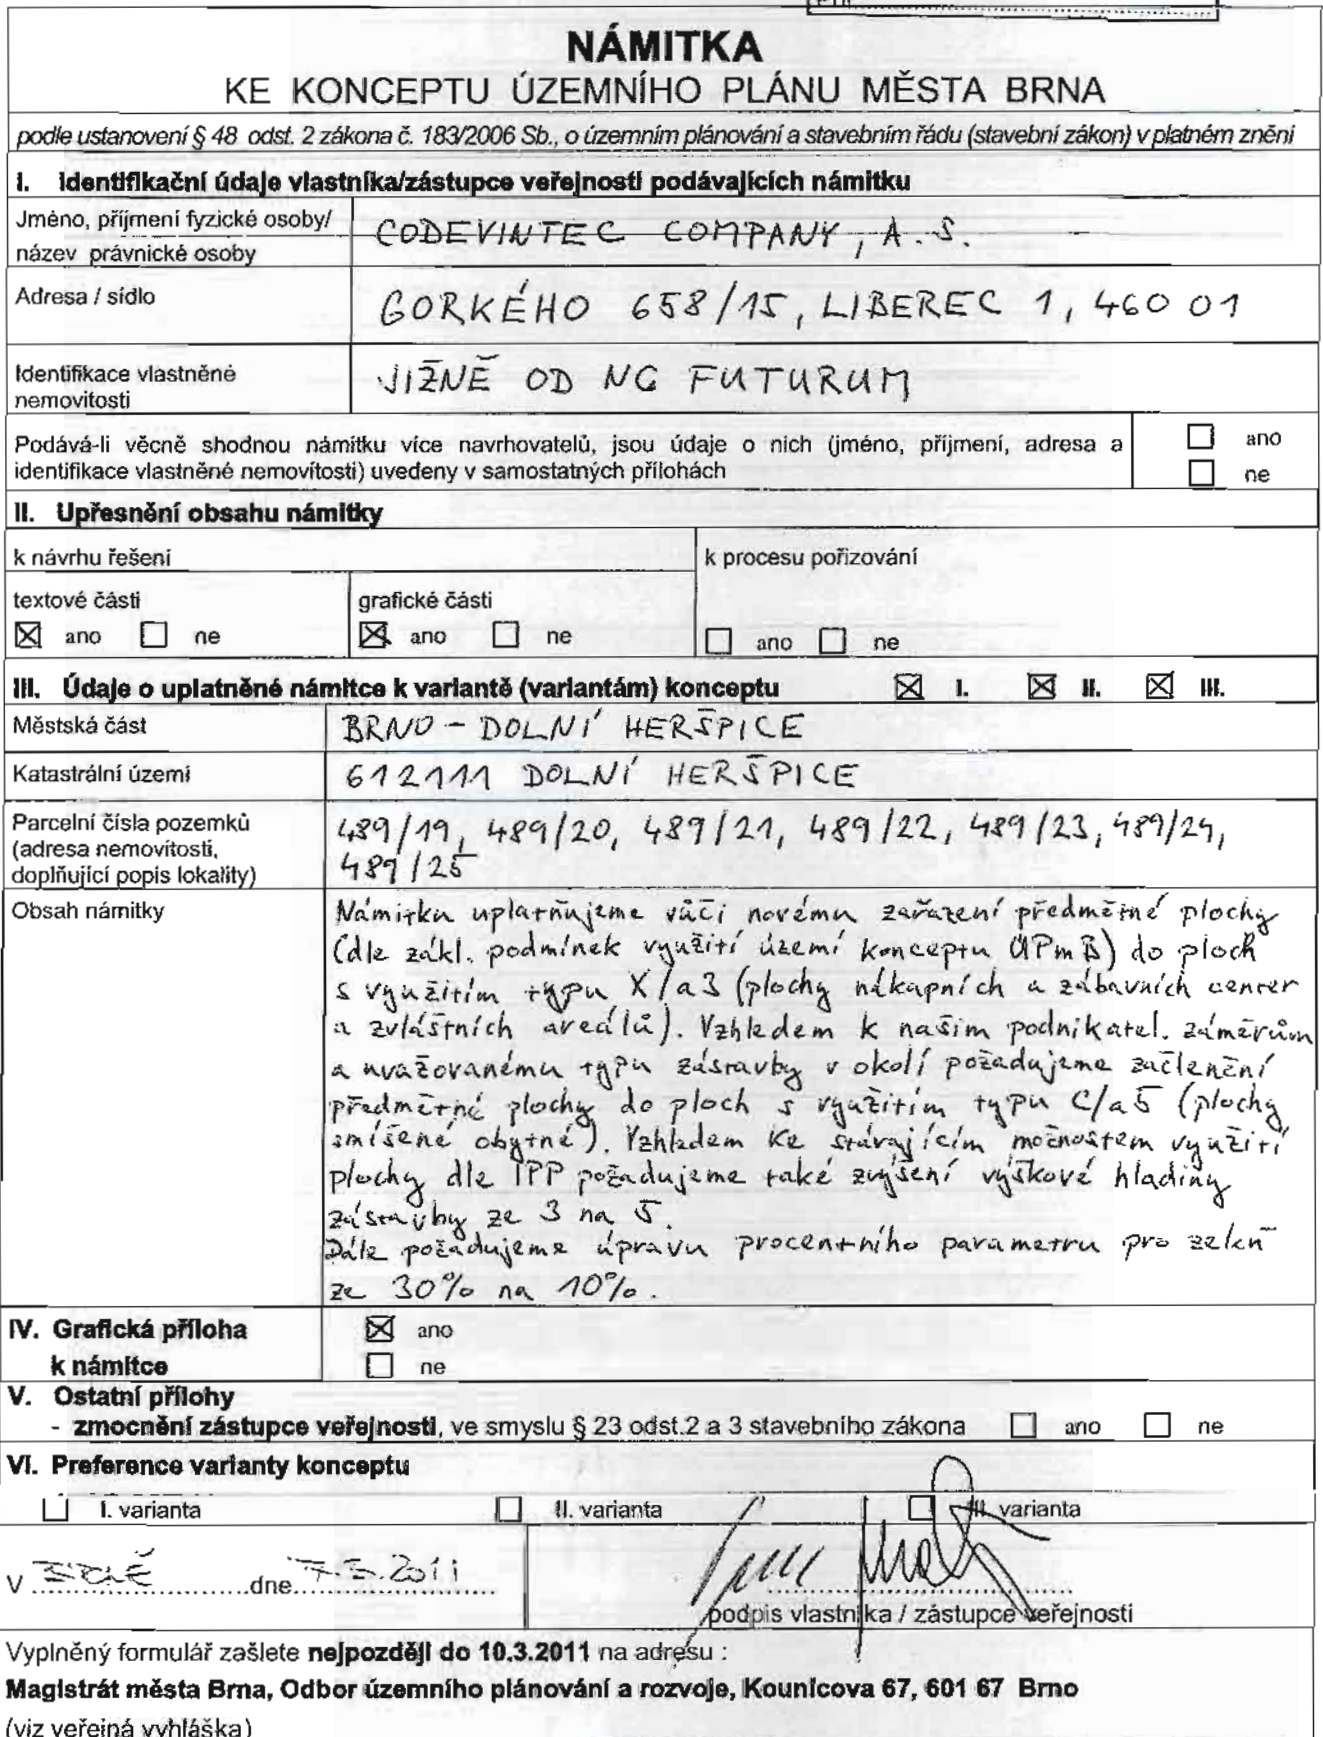 NÁMITKA
KE KONCEPTU ÚZEMNÍHO PLÁNU MĚSTA BRNA
podle ustanovení § 48 odst. 2 zákona č. 183/2006 Sb., o územním plánování a stavebním řádu (stavební zákon) v platném znění
I. Identifikační údaje vlastníka/zástupce veřejnosti podávajících námitku
Jméno, příjmení fyzické osoby/
název právnické osoby
CODEVINTEC COMPANY, A.S.
Adresa / sídlo
GORKÉHO 658/15, LIBEREC 1, 460 01
Identifikace vlastněné
nemovitosti
JIŽNĚ OD NC FUTURUM
Podává-li věcně shodnou námitku více navrhovatelů, jsou údaje o nich (jméno, příjmení, adresa a
identifikace vlastněné nemovitosti) uvedeny v samostatných přílohách
ano
ne
II. Upřesnění obsahu námitky
k návrhu řešení
k procesu pořizování
textové části
grafické části
ano ne
ano ne
ano ne
III. Údaje o uplatněné námitce k variantě (variantám) konceptu I. II. III.
Městská část
BRNO - DOLNÍ HERŠPICE
Katastrální území
612111 DOLNÍ HERŠPICE
Parcelní čísla pozemků
(adresa nemovitosti,
doplňující popis lokality)
489/19, 489/20, 489/21, 489/22, 489/23, 489/24,
489/25
Obsah námitky
Námitku uplatňujeme vůči novému zařazení předmětné plochy
(dle zákl. podmínek využití území konceptu ÚPmB) do ploch
s využitím typu X/a3 (plochy nákupních a zábavních center
a zvláštních areálů). Vzhledem k našim podnikatel. záměrům
a uvažovanému typu zástavby v okolí požadujeme začlenění
předmětné plochy do ploch s využitím typu C/a5 (plochy
smíšené obytné). Vzhledem ke stávajícím možnostem využití
plochy dle ÚPP požadujeme také zvýšení výškové hladiny
zástavby ze 3 na 5.
Dále požadujeme úpravu procentního parametru pro zeleň
ze 30% na 10%.
IV. Grafická příloha
k námitce
ano
ne
V. Ostatní přílohy
- zmocnění zástupce veřejnosti, ve smyslu § 23 odst.2 a 3 stavebního zákona ano ne
VI. Preference varianty konceptu
I. varianta II. varianta III. varianta
V BRNĚ dne 7.3.2011
podpis vlastníka / zástupce veřejnosti
Vyplněný formulář zašlete nejpozději do 10.3.2011 na adresu :
Magistrát města Brna, Odbor územního plánování a rozvoje, Kounicova 67, 601 67 Brno
(viz veřejná vyhláška)